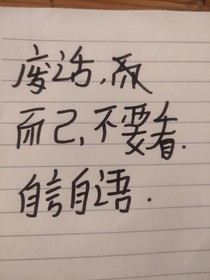 废话,
而己,不要看.
自言自语.